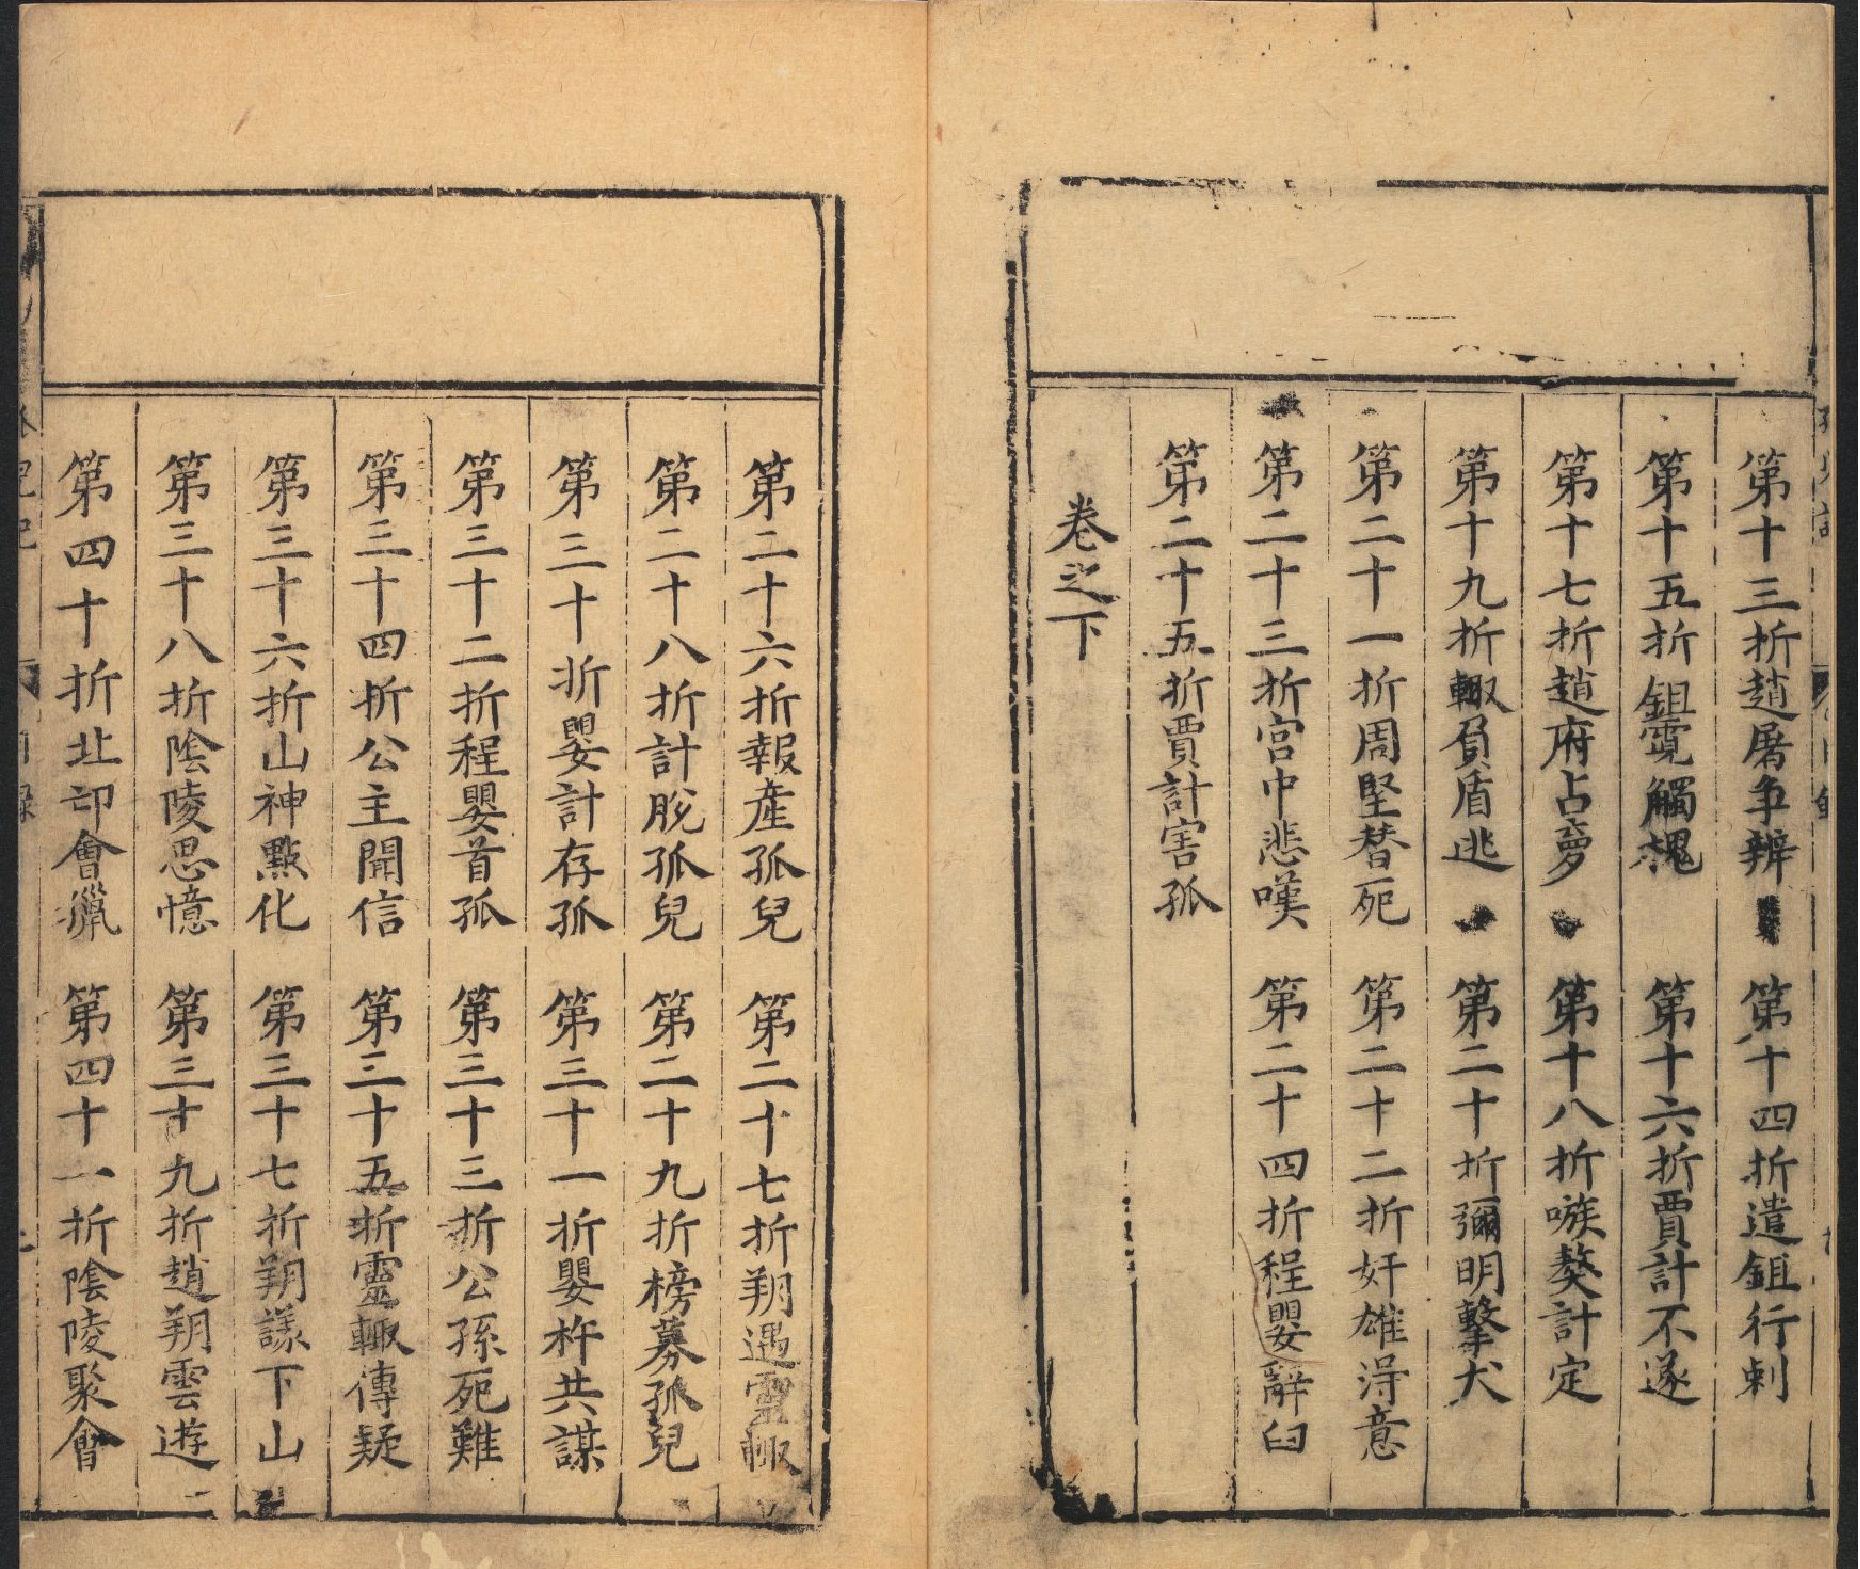 第十三折趙屠争辨　第十四折遣鉏行刺
第十五折鉏霓觸槐　第十六折賈計不遂
第十七折趙府占夢　第十八折嗾獒計定
第十九折輙負盾逃　第二十折彌明擊犬
第二十一折周堅替死　第二十二折奸雄淂意
第二十三折宫中悲嘆　第二十四折程嬰辭臼
第二十五折賈計害孤
卷之下
第二十六折報產孤兒　第二十七折朔遇靈輙
第二十八折計脫孤兒　第二十九折榜募孤兒
第三十折嬰計存孤　第三十一折嬰杵共謀
第三十二折程嬰首孤　第三十三折公孫死難
第三十四折公主聞信　第三十五折靈輙傳疑
第三十六折山神點化　第三十七折朔議下山
第三十八折陰陵思憶　第三十九折趙朔雲遊
第四十折北邙會獵　第四十一折陰陵聚會